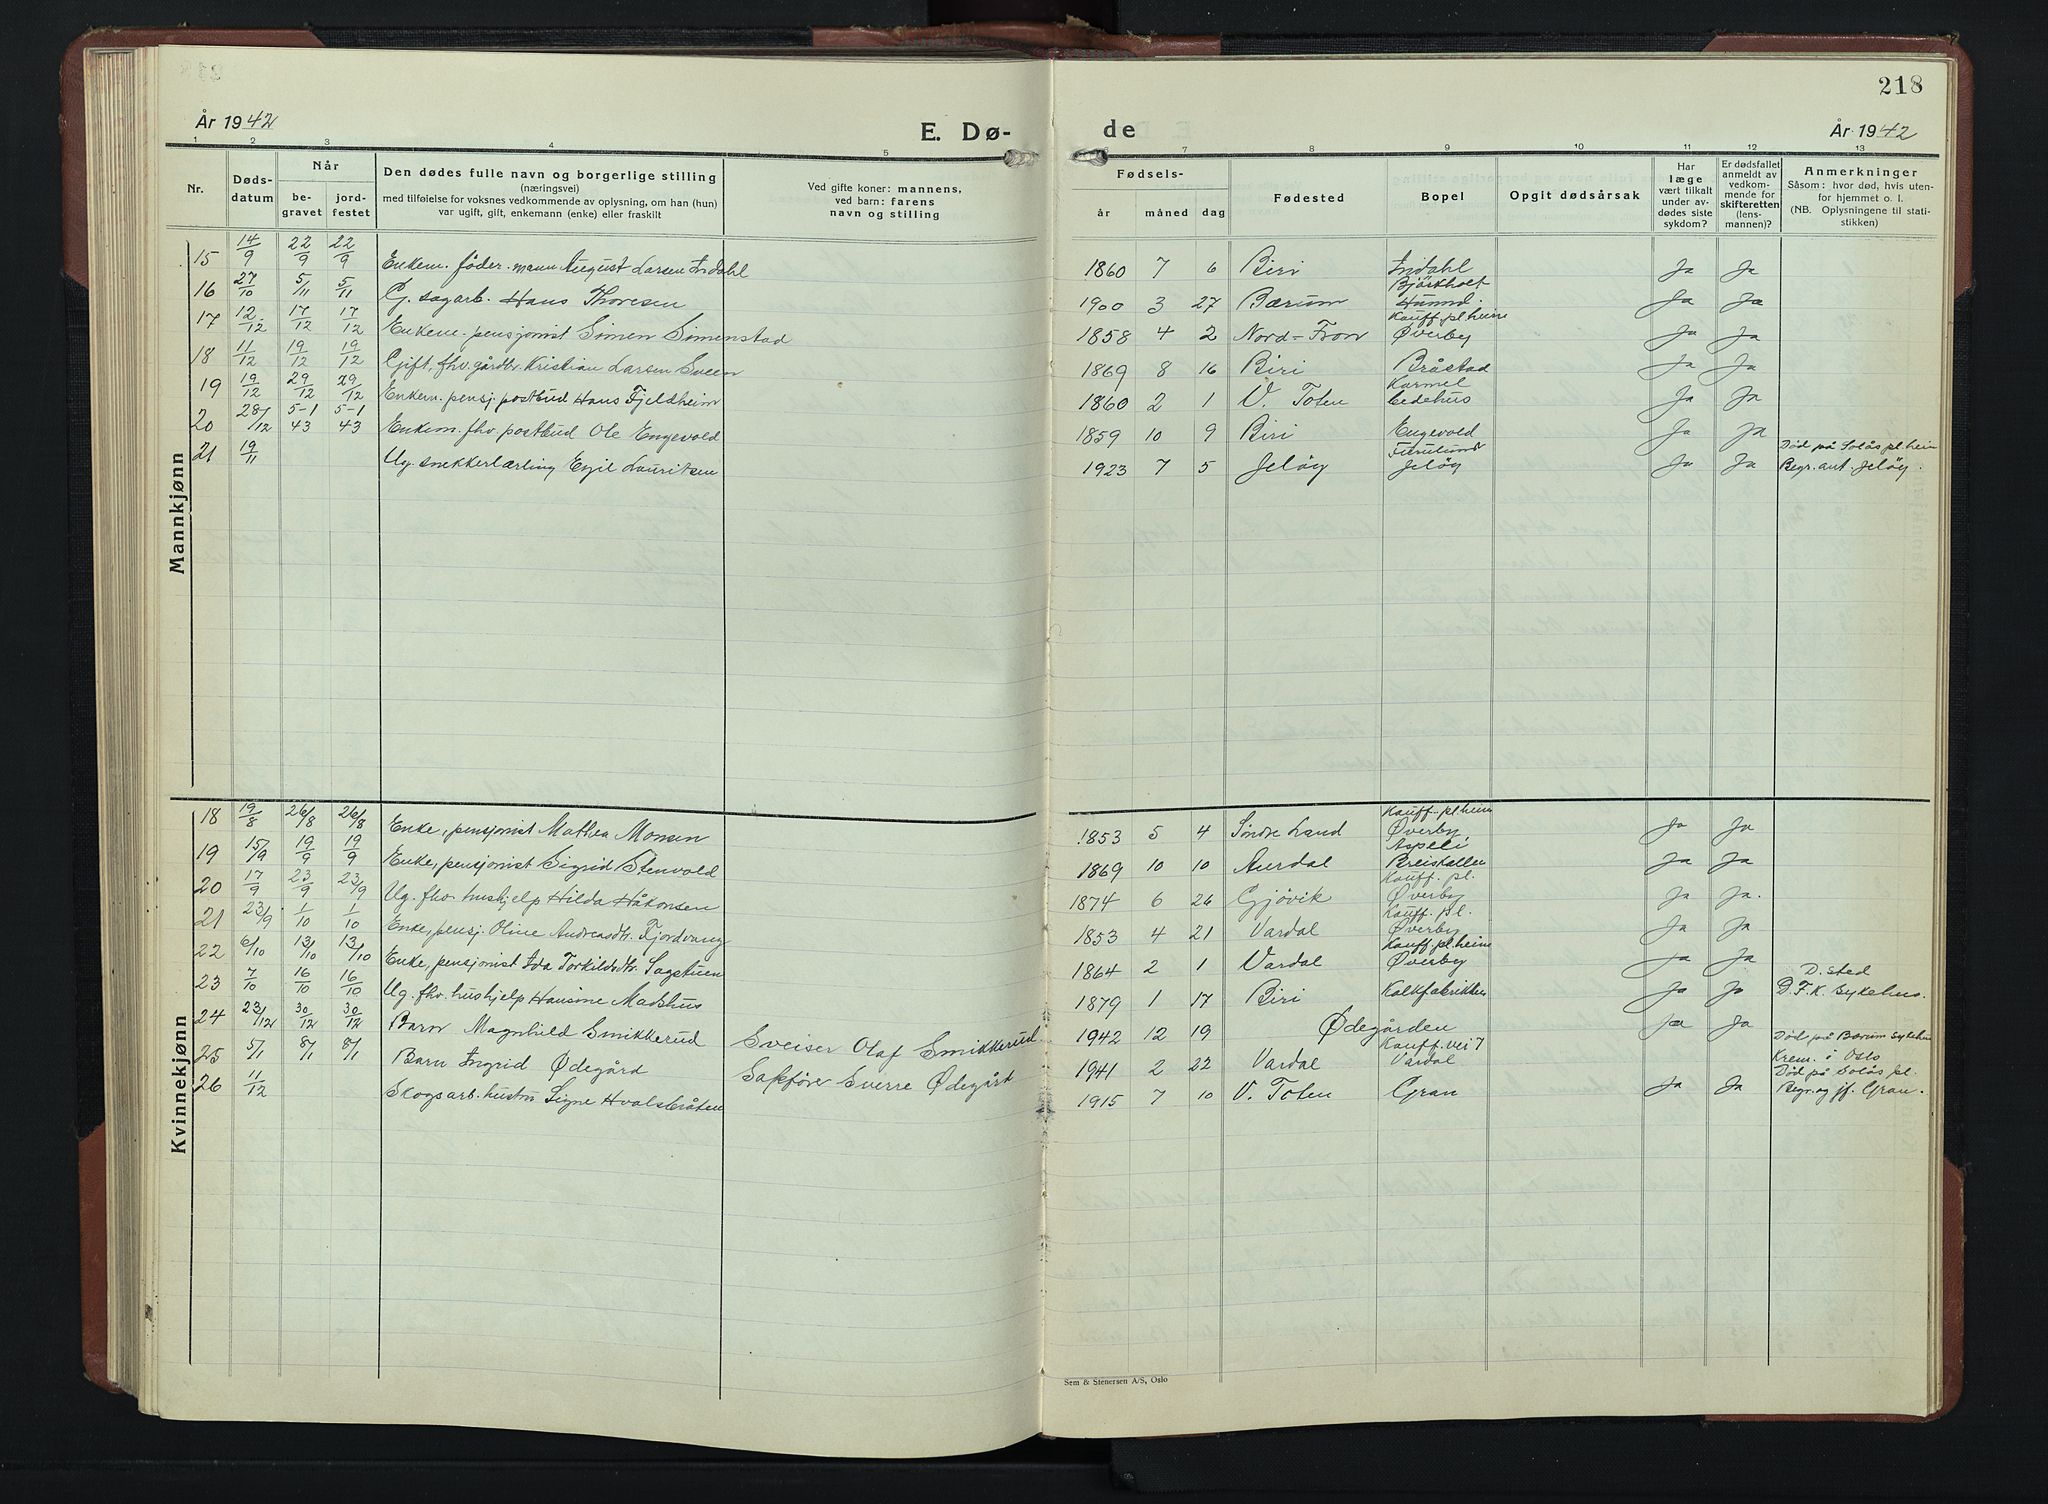 218
År 1942
E. Dø-
de
År 1942
1 2 3 4 5 6 7 8 9 10 11 12 13
Nr.
Døds-
datum
Når
be-
gravet
jord-
festet
Den dødes fulle navn og borgerlige stilling
(næringsvei)
med tilføielse for voksnes vedkommende av oplysning, om han (hun)
var ugift, gift, enkemann (enke) eller fraskilt
Ved gifte koner: mannens,
ved barn: farens
navn og stilling
Fødsels-
år måned dag
Fødested
Bopel
Opgit dødsårsak
Har
læge
vært tilkalt
under av-
dødes siste
sykdom?
Er dødsfallet
anmeldt av
vedkom-
mende for
skifteretten
(lens-
mannen)?
Anmerkninger
Såsom: hvor død, hvis uten-
for hjemmet o. l.
(NB. Oplysningene til stati-
stikken)
Mannkjønn
15 14/9 22/9 22/9 Enkem. föder. mann August Larsen Indahl 1860 7 6 Biri Indahl Ja Ja
16 27/10 5/11 5/11 G. sagarb. Hans Thoresen 1900 3 27 Bærum Björkholt Hunnd. Ja Ja
17 12/12 17/12 17/12 Enkem. pensjonist Simen Simenstad 1858 4 2 Nord-Fron Kauff. pl.heim Øverby Ja Ja
18 11/12 19/12 19/12 Gift, fhv. gårdbr. Kristian Larsen Sveen 1869 8 16 Biri Bråstad Ja Ja
19 19/12 29/12 29/12 Enkem. pensj. postbud Hans Fjeldheim 1860 2 1 V. Toten Karmel bedehus Ja Ja
20 28/12 5-1 43 5-1 43 Enkem. fhv. postbud Ole Engevold 1859 10 9 Biri Engevold Ja Ja
21 19/11 Ug. snekkerlærling Egil Lauritsen 1923 7 5 Jeløy Furulund Jeløy Ja Ja Død på Solås pl.heim
Begr. ant. Jeløy.
Kvinnekjønn
18 19/8 26/8 26/8 Enke, pensjonist Mathea Monsen 1853 5 4 Søndre Land Kauff. pl.heim Øverby Ja Ja
19 15/9 19/9 19/9 Enke, pensjonist Sigrid Stenvold 1869 10 10 Aurdal Aspeli Breiskallen Ja Ja
20 17/9 23/9 23/9 Ug. fhv. hushjelp Hilda Håkonsen 1874 6 26 Gjøvik Kauff. pl. Øverby Ja Ja.
21 23/9 1/10 1/10 Enke, pensj. Oline Andreasdtr. Fjordvang 1853 4 21 Vardal Kauff. pl. Øverby Ja Ja
22 6/10 13/10 13/10 Enke, pensjonist Ida Torkildsdtr. Sagstuen 1864 2 1 Vardal Kauff. pl.heim Øverby Ja Ja
23 7/10 16/10 16/10 Ug. fhv. hushjelp Hansine Madshus 1879 1 17 Biri Kalkfabrikken Ja Ja D. sted
D.F.K. Sykehus.
24 23/12 30/12 30/12 Barn Magnhild Smikkerud Sveiser Olaf Smikkerud. 1942 12 19 Ødegården Ja Ja
25 5/1 8/1 8/1 Barn Ingrid Ødegård Sjåfør Sverre Ødegård 1941 2 22 Vardal Kauff. vei 7 Vardal Død på Bærum Sykehus
Krem. i Oslo
26 11/12 Skogsarb. hustru Signe Hvalsbråten 1915 7 10 V. Toten Gran Ja Ja Død på Solås pl.
Begr. og jf. Gran.
Sem & Stenersen A/S, Oslo